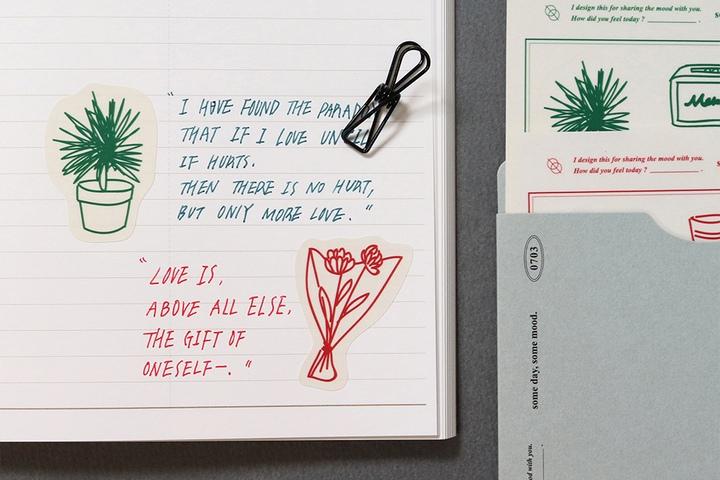 "I HAVE FOUND THE
THAT IF I LOVE
IF HURTS.
THEN THERE IS NO HURT,
BUT ONLY MORE LOVE."
"LOVE IS,
ABOVE ALL ELSE,
THE GIFT OF
ONESELF—."
I design this for sharing the mood with you.
How did you feel today ? ____________ .
I design this for sharing the mood with you.
How did you feel today ? ____________ .
0703
some day, some mood.
with you.